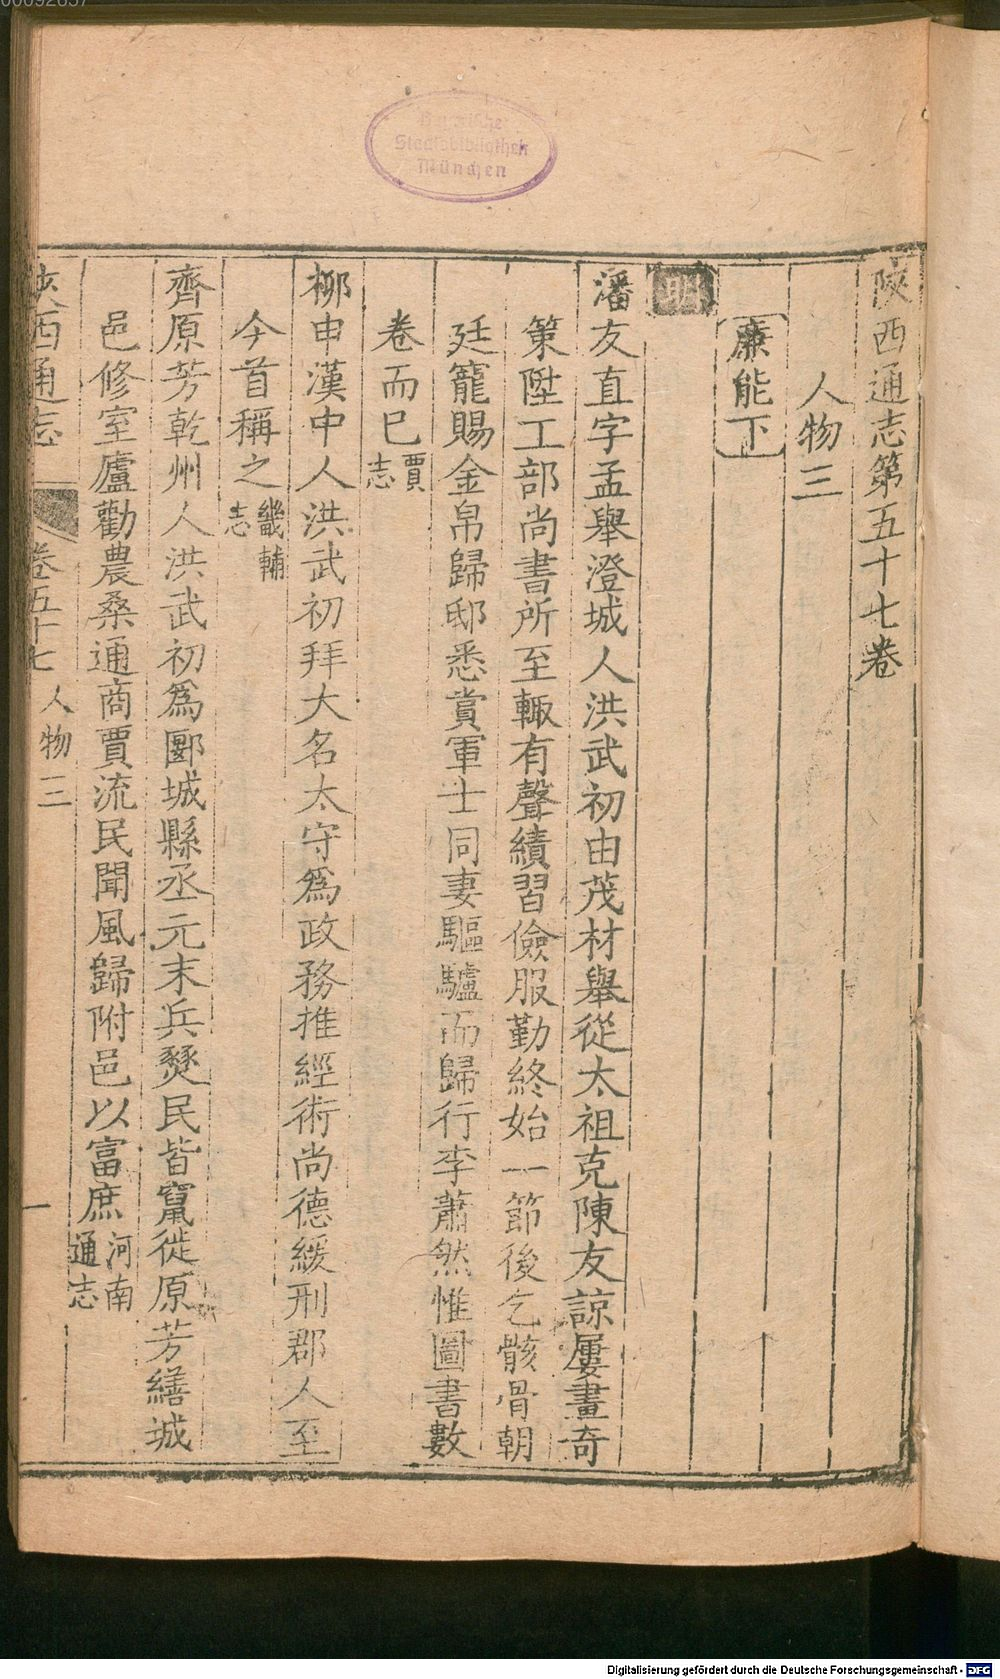 00092637
Bayerische
Staatsbibliothek
München
陝西通志第五十七卷
人物三
廉能下
明
潘友直字孟舉澄城人洪武初由茂材舉從太祖克陳友諒屢畫奇
策陞工部尚書所至輒有聲績習儉服勤終始一節後乞骸骨朝
廷寵賜金帛歸邸悉賞軍士同妻驅驢而歸行李蕭然惟圖書數
卷而已賈志
柳申漢中人洪武初拜大名太守爲政務推經術尚德緩刑郡人至
今首稱之畿輔志
齊原芳乾州人洪武初爲郾城縣丞元末兵燹民皆竄徙原芳繕城
邑修室廬勸農桑通商賈流民聞風歸附邑以富庶河南通志
陝西通志 卷五十七 人物三 一
Digitalisierung gefördert durch die Deutsche Forschungsgemeinschaft - DFG